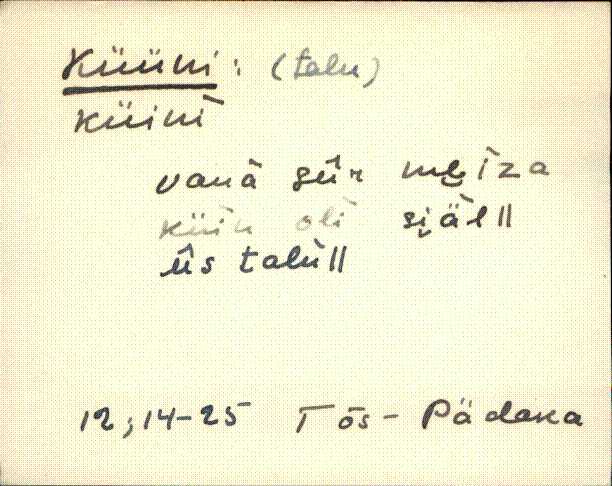 Küüni: (talu)
küinì
vanà sǖr mẹiza
küin oli siäl ||
ǖs talù ||
12,14-25 Tõs - Pädaka